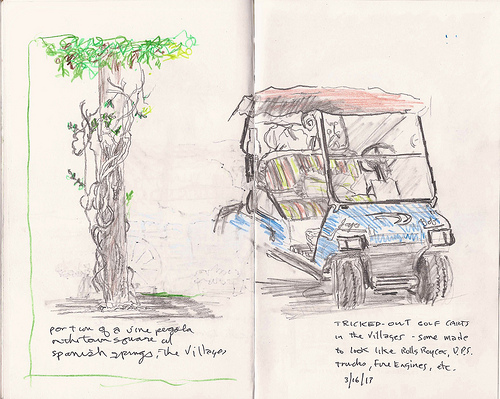 portion of a vine pergola
in the town square at
Spanish Springs, The Villages
TRICKED-OUT GOLF CARTS
in the Villages - some made
to look like Rolls Royces, U.P.S.
trucks, Fire Engines, etc.
3/16/17